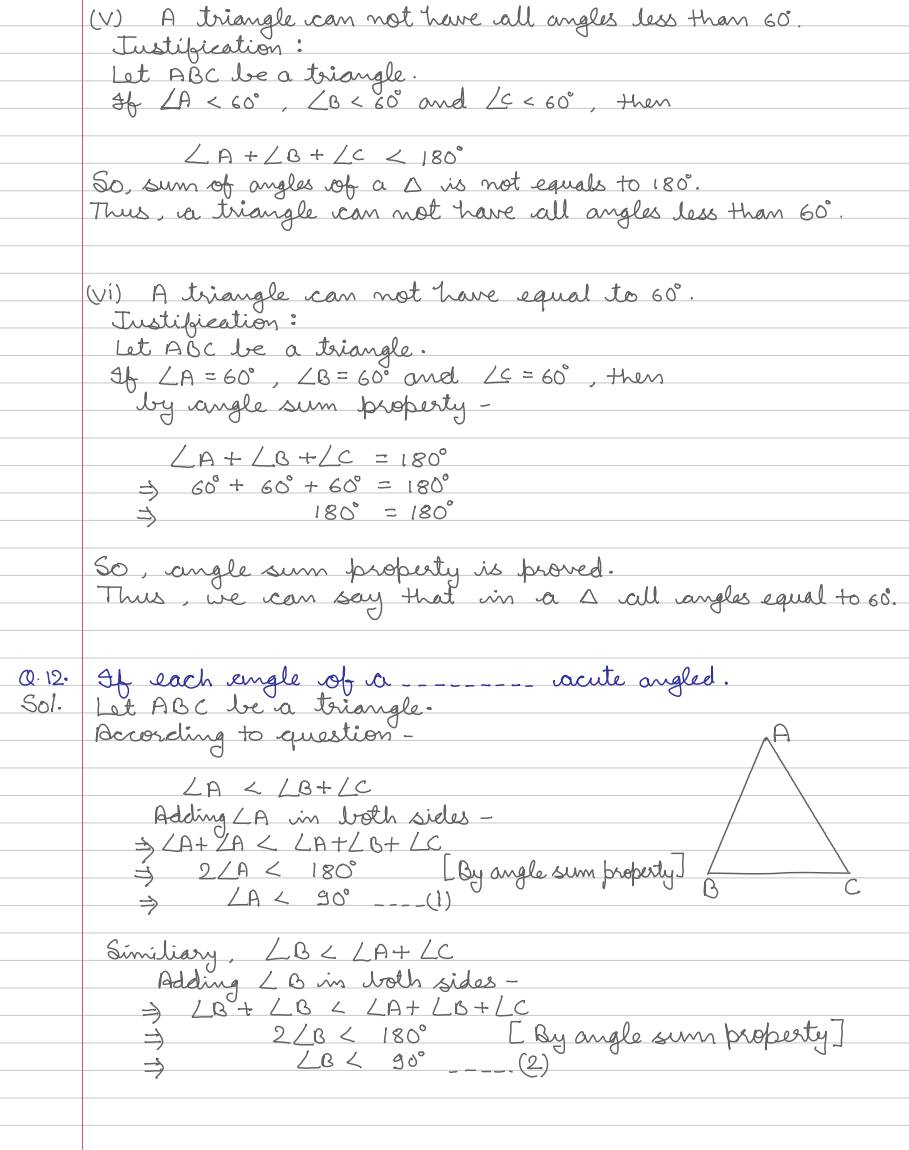 (v) A triangle can not have all angles less than 60°.
Justification :
Let ABC be a triangle.
If ∠A < 60° , ∠B < 60° and ∠C < 60° , then
∠A + ∠B + ∠C < 180°
So, sum of angles of a Δ is not equals to 180°.
Thus, a triangle can not have all angles less than 60°.
(vi) A triangle can not have equal to 60°.
Justification :
Let ABC be a triangle.
If ∠A = 60° , ∠B = 60° and ∠C = 60° , then
by angle sum property -
∠A + ∠B + ∠C = 180°
⇒ 60° + 60° + 60° = 180°
⇒ 180° = 180°
So, angle sum property is proved.
Thus, we can say that in a Δ all angles equal to 60°.
Q.12. If each angle of a --------- acute angled.
Sol. Let ABC be a triangle.
According to question -
A
∠A < ∠B + ∠C
Adding ∠A in both sides -
⇒ ∠A + ∠A < ∠A + ∠B + ∠C
⇒ 2∠A < 180° [By angle sum property]
B C
⇒ ∠A < 90° ----(1)
Similiary, ∠B < ∠A + ∠C
Adding ∠B in both sides -
⇒ ∠B + ∠B < ∠A + ∠B + ∠C
⇒ 2∠B < 180° [By angle sum property]
⇒ ∠B < 90° -----(2)